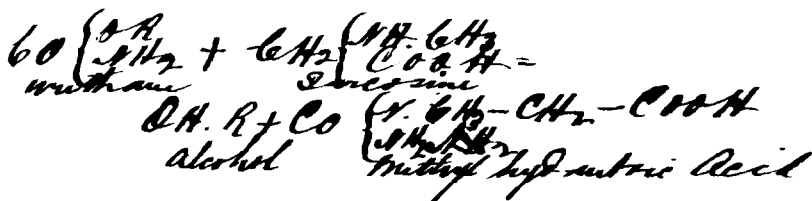 CO { OR NH2 + CH2 { NH. CH3 COOH =
urethane Sarcosine
OH. R + CO { N. CH3 - CH2 - COOH NH2
alcohol Methyl hydantoic Acid